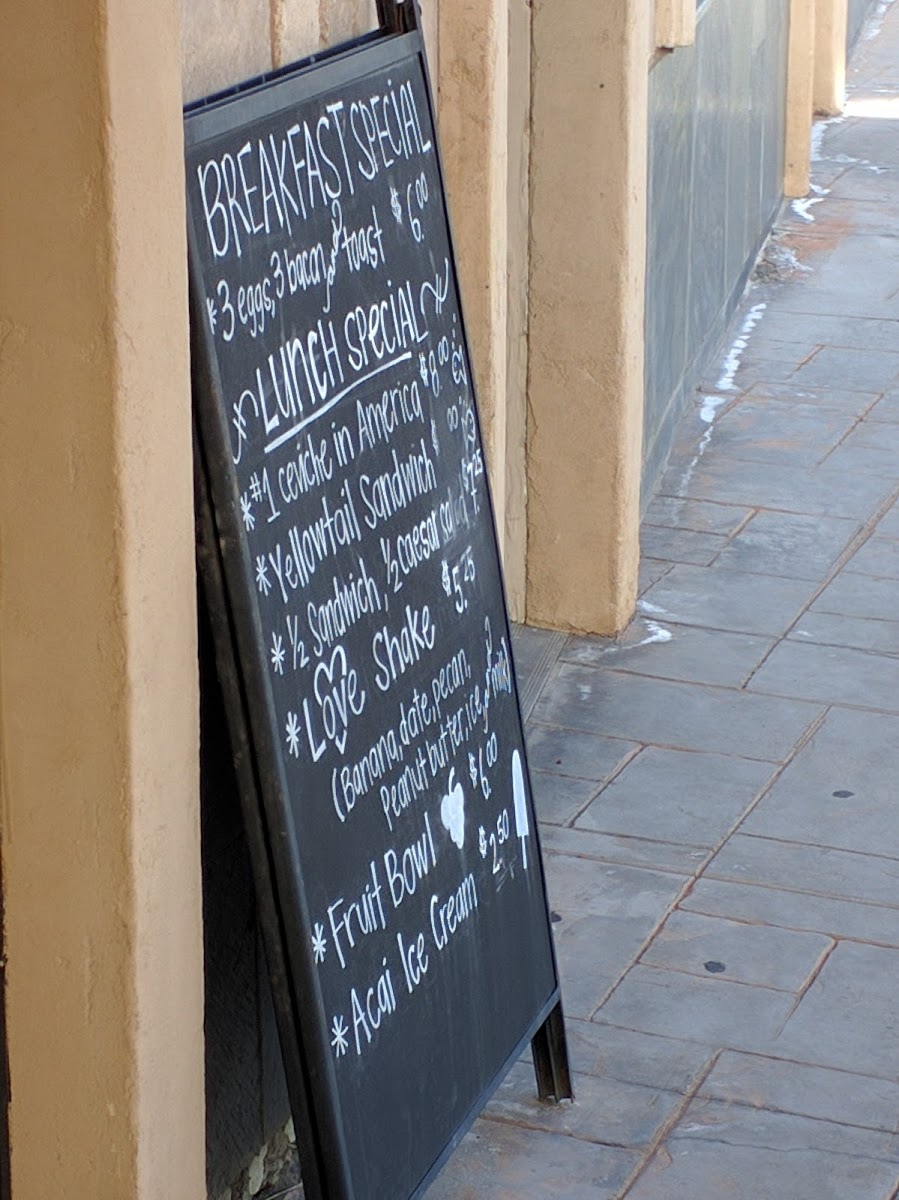 BREAKFAST SPECIAL
*3 eggs, 3 bacon, & toast $6.00
LUNCH SPECIAL
*#1 ceviche in America $8.00
*Yellowtail Sandwich $ .00
*½ Sandwich, ½ caesar $7.25
*LOVE Shake $5.25
(Banana, date, pecan,
Peanut butter, ice, & milk)
*Fruit Bowl $6.00
*Acai Ice Cream $2.50